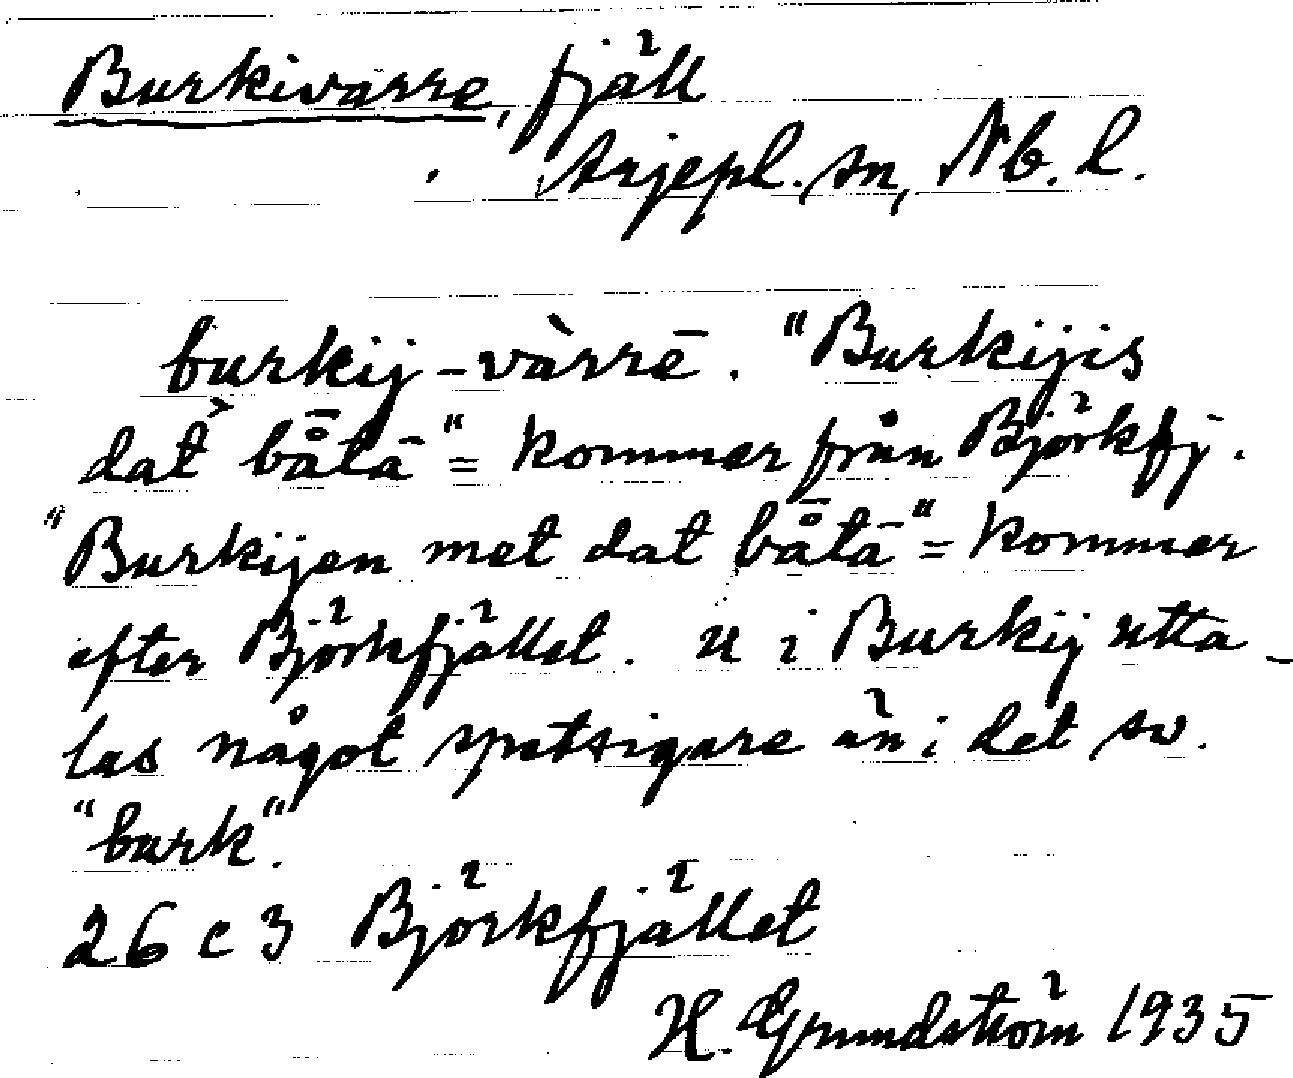 Burkivarre, fjäll
Arjepl. sn, Nb. l.
burkij-vàrrē. "Burkijis
dat̀ bå̄tā" = kommer från Björkfj.
"Burkijen met dat bå̄tā" = kommer
efter Björkfjället. u i Burkij utta-
las något spetsigare än i det sv.
"burk".
26 c 3 Björkfjället
H. Grundström 1935